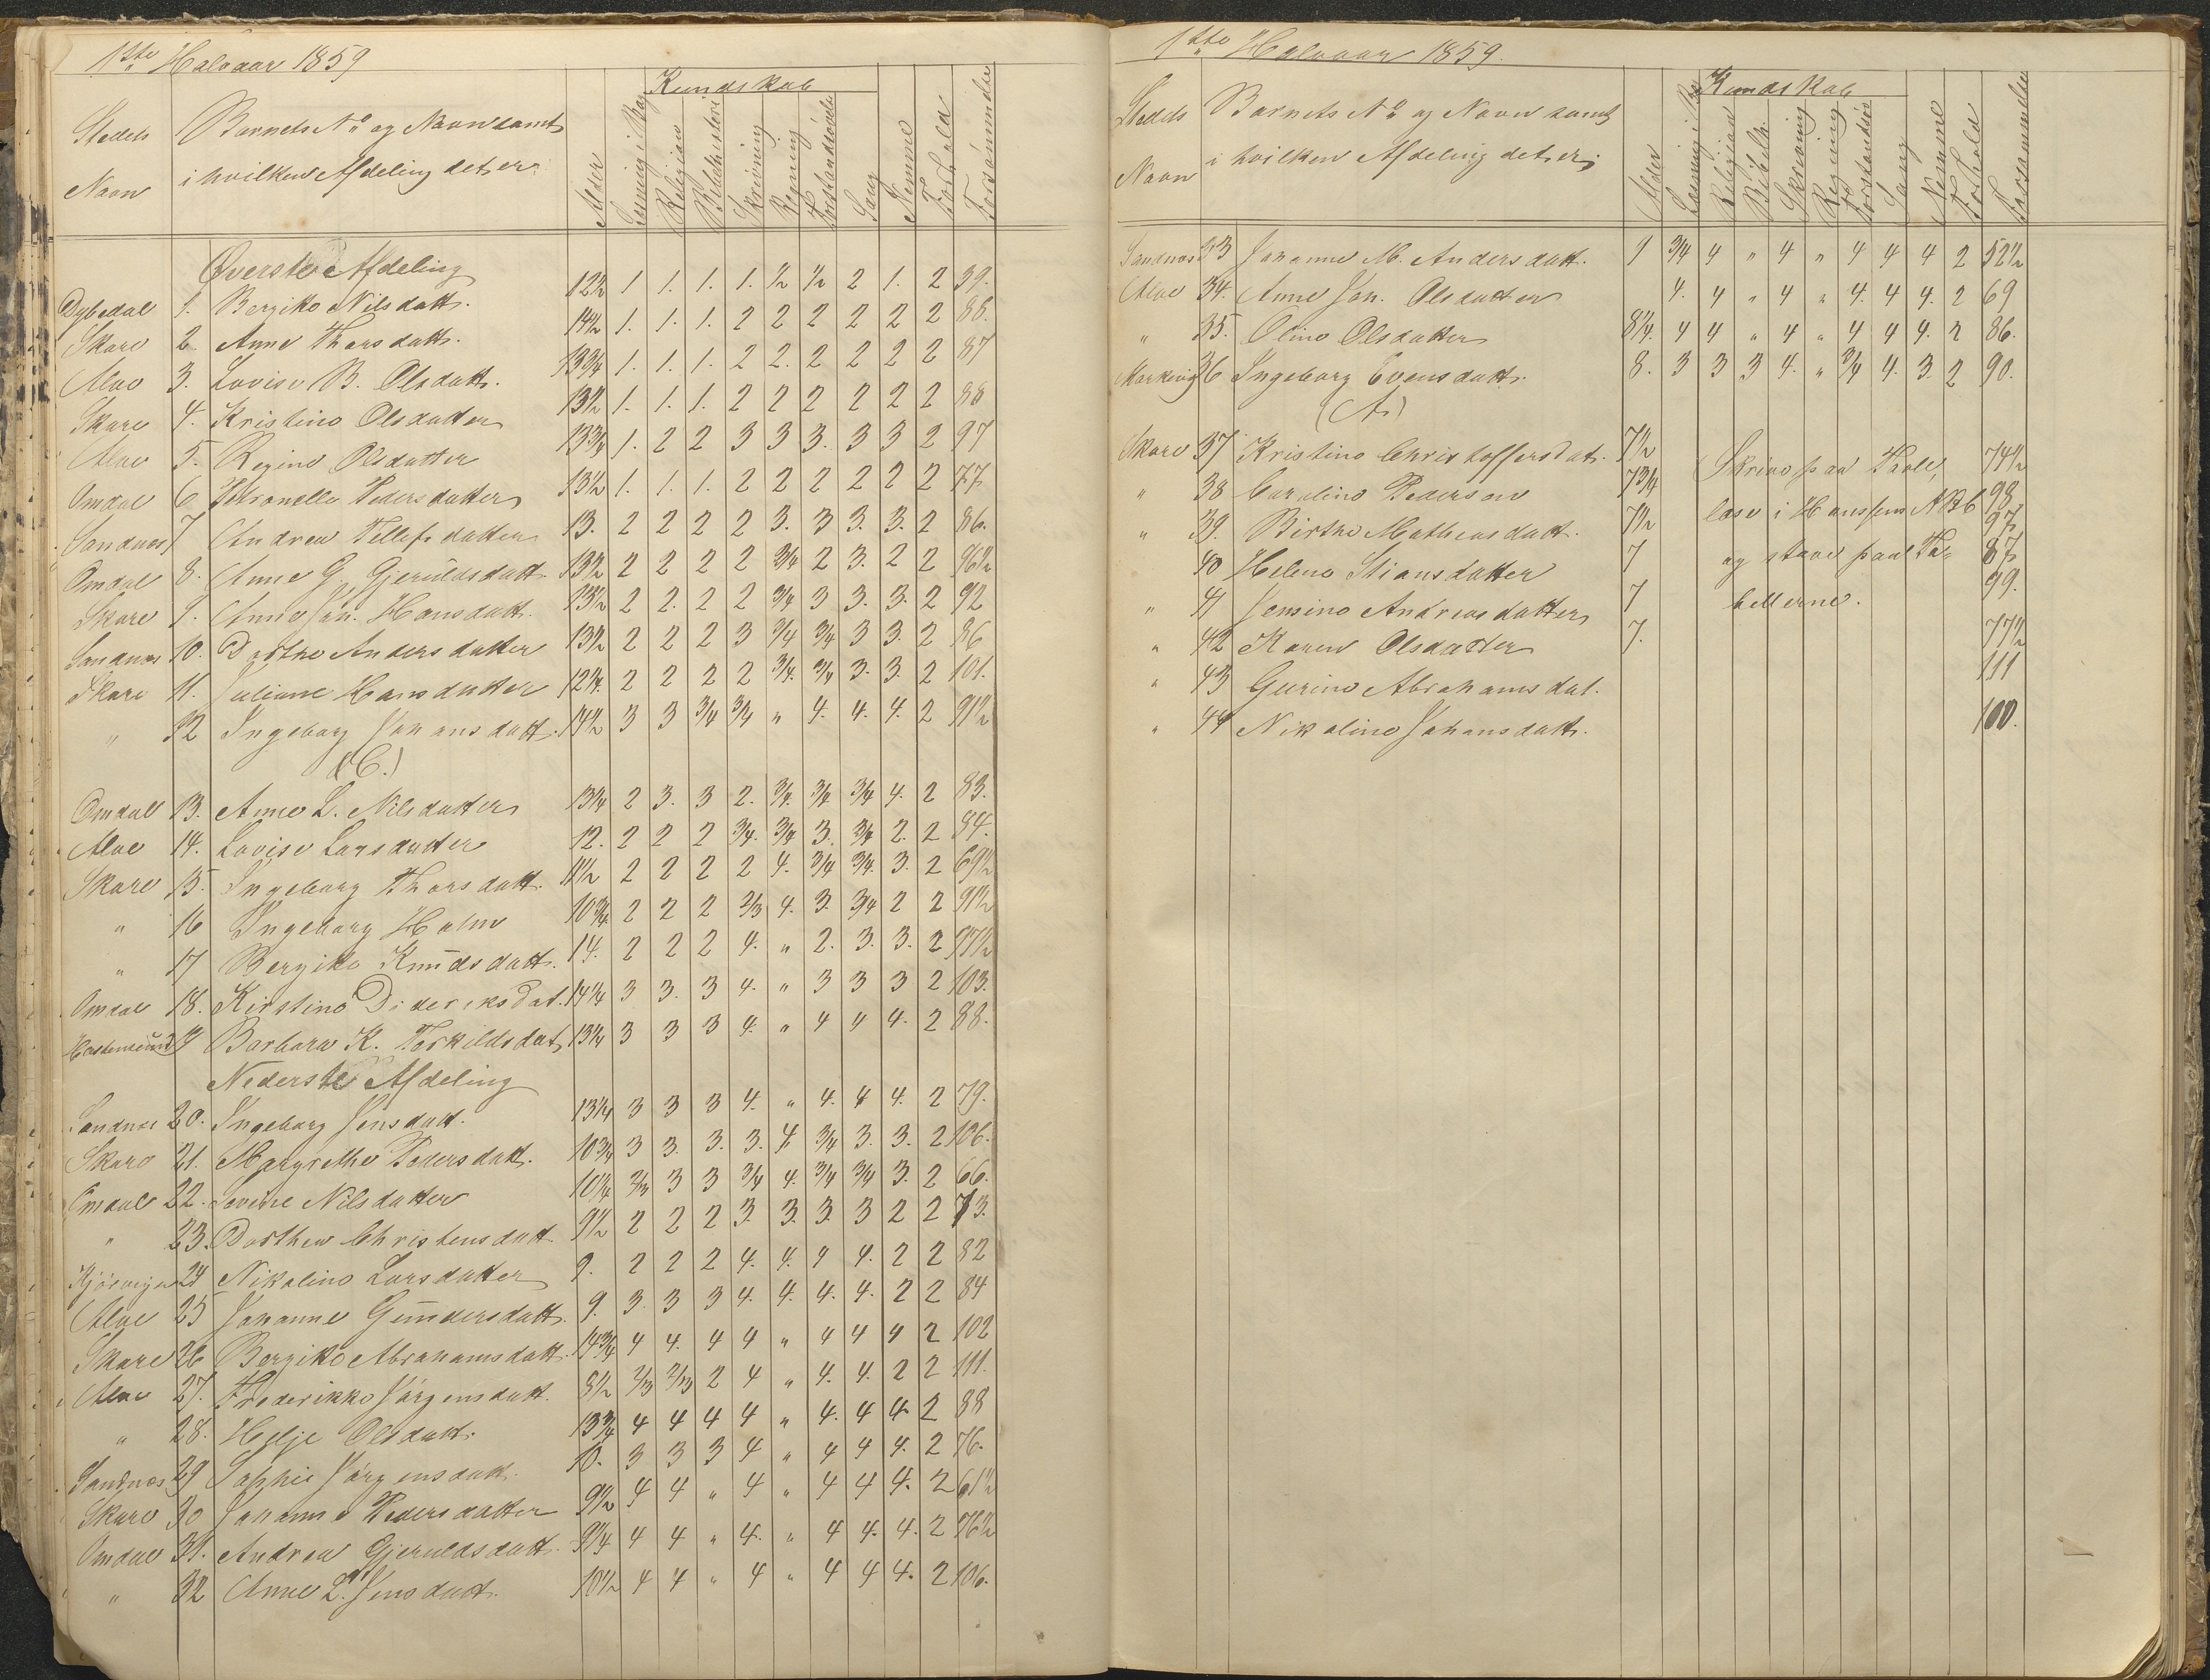 1ste Halvaar 1859
Kundskab
Steds Navn
Barnets No og Navn samt i hvilken Afdeling det er.
Alder
Læsning i Bog
Religion
Bibelhistorie
Skrivning
Regning
Forstandsøvelse
Sang
Nemme
Forhold
Forsømmelse
Øverste Afdeling
Dybedal 1. Bergitte Nilsdatt. 12½ 1 1. 1. 1. ½ ½ 2 1. 2 39.
Skare 2. Anne Thorsdatt. 14½ 1. 1. 1. 2 2 2 2 2 2 88.
Alve 3. Lovise B. Olsdatt. 13¾ 1. 1. 1. 2 2. 2 2 2 2 87
Skare 4. Kristine Olsdatter 13½ 1. 1. 1. 2 2 2 2 2 2 88
Alve 5. Regine Olsdatter 13¾ 1. 2 2 3 3 3. 3 3 2 97
Omdal 6 Petronelle Pedersdatter 13½ 1. 1. 1. 2 2 2 2 2 2 77
Sandnæs 7 Andrea Tellefsdatter 13. 2 2 2 2 3. 3 3. 3. 2 86.
Omdal 8. Anne G. Gjeruldsdatt. 13½ 2 2 2 2 ¾ 2 3. 2 2 96½
Skare 9. Anne Joh. Hansdatt. 13½ 2 2. 2 2 ¾ 3 3. 3. 2 92
Sandnæs 10. Dorthe Andersdatter 13½ 2 2 2 3 ¾ ¾ 3 3. 2 86
Skare 11. Juliane Hansdatter 12¼ 2 2 2 2 ¾ ¾ 3. 3. 2 101.
" 12 Ingeborg Johansdatt. 14½ 3 3 ¾ ¾ " 4. 4. 4. 2 91½
Omdal 13. Anne L. Nilsdatter 13¼ 2 3. 3 2. ¾ ¾ ¾ 4. 2 83.
Alve 14. Lovise Larsdatter 12. 2 2 2 ¾ ¾ 3. ¾ 2. 2 84.
Skare 15. Ingeborg Thorsdatt. 11½ 2 2 2 2 4. ¾ ¾ 3. 2 69½
" 16 Ingeborg Holm 10¾ 2 2 2 2/3 4. 3. ¾ 2 2 91½
" 17 Bergitte Knudsdatt. 14. 2 2 2 4. " 2. 3. 3. 2 97½
Omdal 18. Kirstine Dideriksdat. 14¼ 3 3. 3 4. " 3 3 3 2 103.
19 Barbara K. Torkildsdat 13¼ 3 3 3 4. " 4 4 4. 2 88.
Nederste Afdeling
Sandnæs 20. Ingeborg Jensdatt. 13¼ 3 3 3 4. " 4. 4 4. 2 79.
Skare 21. Margrethe Pedersdatt. 10¾ 3 3. 3. 3. 4. ¾ 3. 3. 2 106.
Omdal 22. Sevine Nilsdatter 10¼ 2/3 3 3 ¾ 4. ¾ ¾ 3. 2 66.
" 23. Dorthea Christensdatt. 9½ 2 2 2 3. 3. 3. 3 2 2 73.
24 Nikoline Larsdatter 9. 2 2 2 4. 4. 4 4. 2 2 82
Alve 25 Johanne Gundersdatt. 9. 3. 3 3 4. 4. 4. 4. 2 2 84
Skare 26 Bergitte Abrahamsdatt. 14¾ 4 4. 4 4 " 4 4 4 2 102
Alve 27. Frederikke Jørgensdatt. 8½ 2/3 2/3 2 4 " 4. 4. 2 2 111.
" 28. Helje Olsdatt. 13¾ 4 4 4 4 " 4. 4 4 2 88
Sandnæs 29 Sophie Jørgensdatt. 10. 3 3 3 4 " 4 4 4. 2 76.
Skare 30 Johanne Pedersdatter 9½ 4 4 " 4 " 4 4 4. 2 61½
Omdal 31. Andrea Gjeruldsdatt. 9¼ 4 4 " 4. " 4 4. 4. 2 76½
" 32 Anne L. Jensdatt. 10½ 4 4 " 4 " 4 4 4. 2 106.
1ste Halvaar 1859.
Kundskab
Steds Navn
Barnets No og Navn samt i hvilken Afdeling det er,
Alder
Læsning i Bog
Religion
Bibelh.
Skrivning
Regning
Forstandsøv
Sang
Nemme
Forhold
Forsømmelse
Sandnæs 33 Johanne M. Andersdatt. 9 ¾ 4 " 4 " 4 4 4 2 52½
Alve 34. Anne Joh. Olsdatter 4. 4 " 4 " 4. 4 4. 2 69
" 35. Oline Olsdatter 8¼. 4 4 " 4 " 4 4 4. 2 86.
36 Ingeborg Evensdatt. 8. 3 3 3 4. " ¾ 4. 3. 2 90.
(A)
Skare 37 Kristine Christoffersdat. 7½ 74½
" 38 Caroline Pedersen 7¾ 98
" 39. Birthe Mathiasdatt. 7½ 97
40 Helene Stiansdatter 7 87
" 41 Jensine Andreasdatter 7 99.
" 42 Karen Olsdatter 7. 77½
" 43 Gurine Abrahamsdat. 111
" 44 Nikoline Johansdatt. 100.
Skrive paa Tavle,
læse i Hanssens ABC
og stave paa Ta-
bellerne.